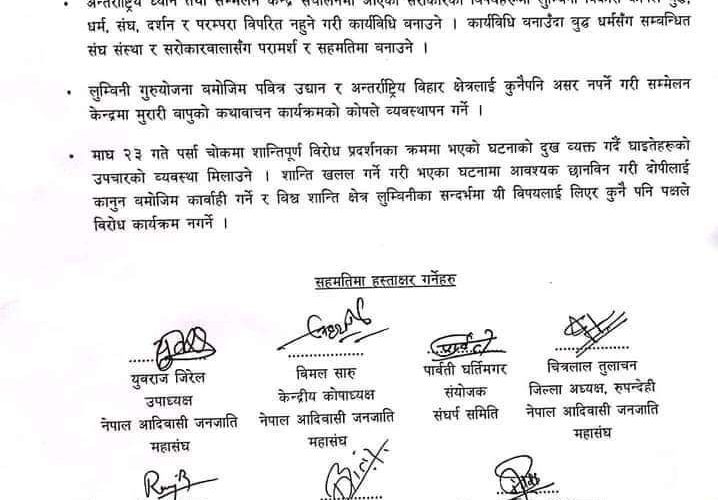 अन्तर्राष्ट्रिय ध्यान तथा सम्मेलन केन्द्र
धर्म, संघ, दर्शन र परम्परा विपरित नहुने गरी कार्यविधि बनाउने । कार्यविधि बनाउँदा बुद्ध धर्मसँग सम्बन्धित
संघ संस्था र सरोकारवालासँग परामर्श र सहमतिमा बनाउने ।
• लुम्बिनी गुरुयोजना बमोजिम पवित्र उद्यान र अन्तर्राष्ट्रिय विहार क्षेत्रलाई कुनैपनि असर नपर्ने गरी सम्मेलन
केन्द्रमा मुरारी बापुको कथावाचन कार्यक्रमको कोपले व्यवस्थापन गर्ने ।
• माघ २३ गते पर्सा चोकमा शान्तिपूर्ण विरोध प्रदर्शनका क्रममा भएको घटनाको दुख व्यक्त गर्दै घाइतेहरूको
उपचारको व्यवस्था मिलाउने । शान्ति खलल गर्ने गरी भएका घटनामा आवश्यक छानविन गरी दोषीलाई
कानुन बमोजिम कार्वाही गर्ने र विश्व शान्ति क्षेत्र लुम्बिनीका सन्दर्भमा यी विषयलाई लिएर कुनै पनि पक्षले
विरोध कार्यक्रम नगर्ने ।
सहमतिमा हस्ताक्षर गर्नेहरु
युवराज जिरेल
उपाध्यक्ष
नेपाल आदिवासी जनजाति
महासंघ
विमल सारु
केन्द्रीय कोषाध्यक्ष
नेपाल आदिवासी जनजाति
महासंघ
पार्वती घर्तिमगर
संयोजक
संघर्ष समिति
चित्रलाल तुलाचन
जिल्ला अध्यक्ष, रुपन्देही
नेपाल आदिवासी जनजाति
महासंघ